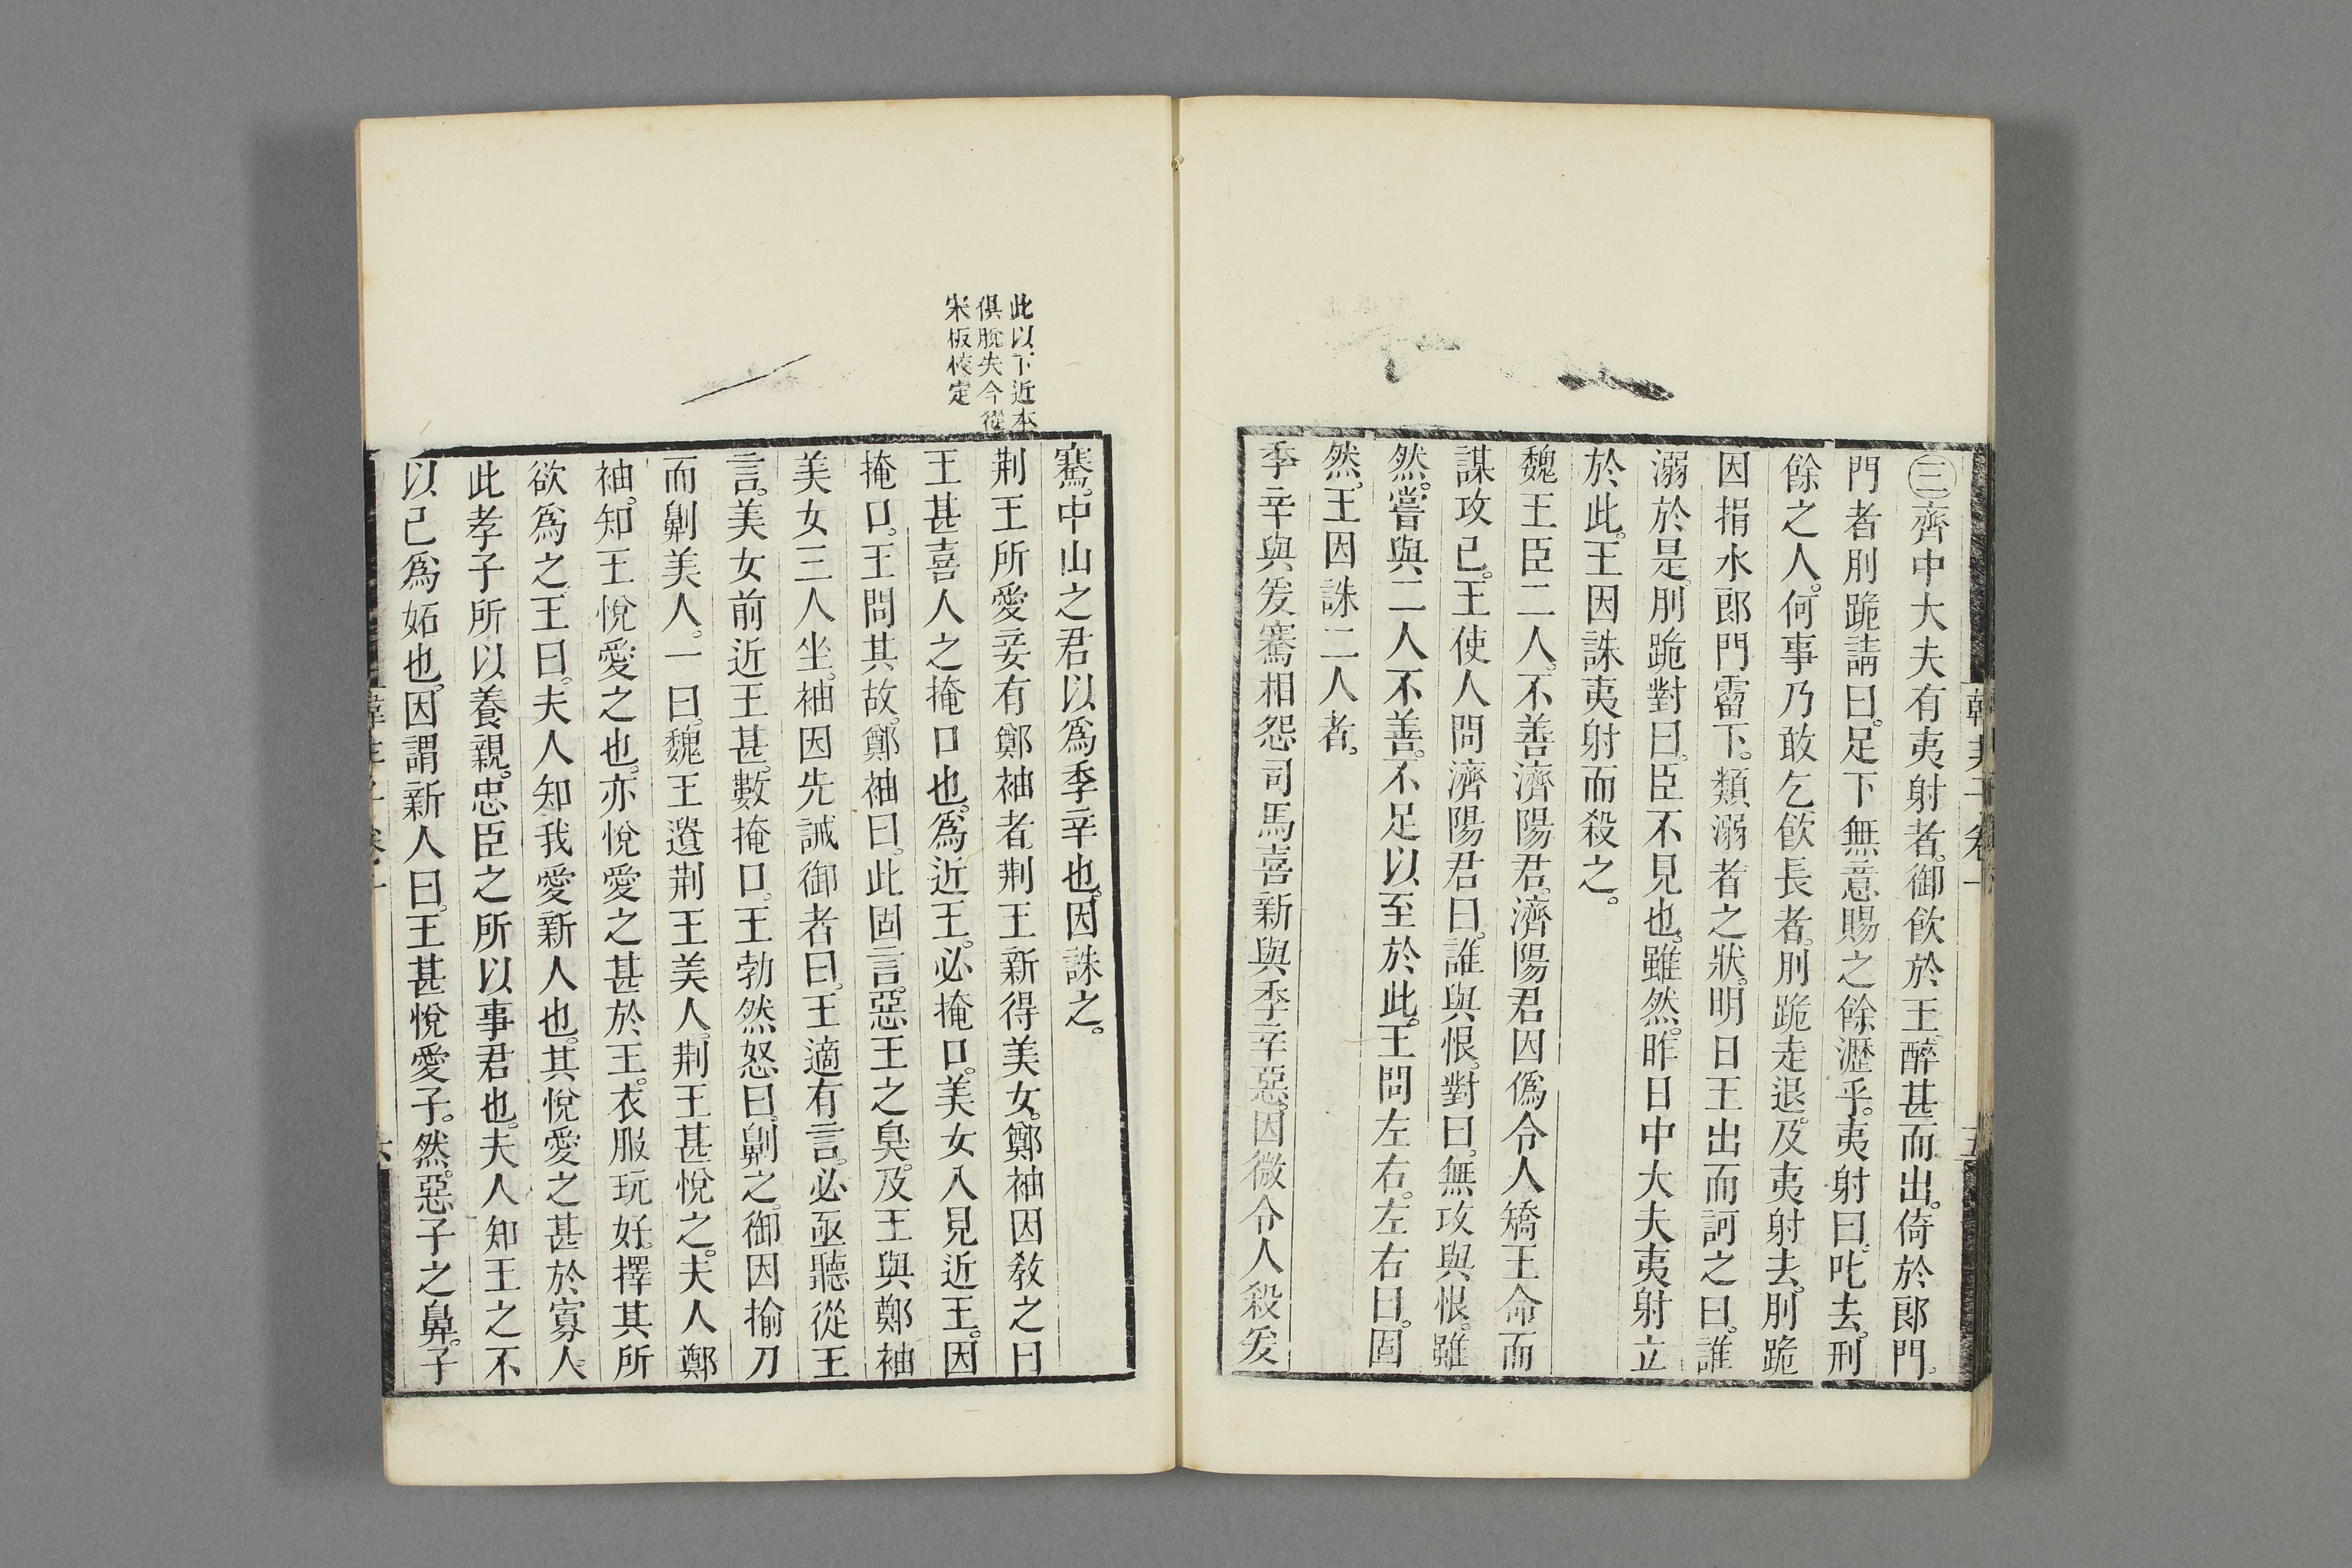 ㊂齊中大夫有夷射者。御飮於王。醉甚而出。倚於郎門。
門者刖跪請曰。足下無意賜之餘瀝乎。夷射曰。叱去。刑
餘之人。何事乃敢乞飮長者。刖跪走退。及夷射去。刖跪
因捐水郎門霤下。類溺者之狀。明日王出而訶之曰。誰
溺於是。刖跪對曰。臣不見也。雖然。昨日中大夫夷射立
於此。王因誅夷射而殺之。
魏王臣二人。不善濟陽君。濟陽君因僞令人矯王命而
謀攻己。王使人問濟陽君曰。誰與恨。對曰。無攻與恨。雖
然。嘗與二人不善。不足以至於此。王問左右。左右曰。固
然。王因誅二人者。
季辛與爰騫相怨。司馬喜新與季辛惡。因微令人殺爰
此以下近本
俱脫失今從
宋板校定
騫。中山之君以爲季辛也。因誅之。
荆王所愛妾有鄭袖者。荆王新得美女。鄭袖因敎之曰
王甚喜人之掩口也。爲近王。必掩口。美女入見近王。因
掩口。王問其故。鄭袖曰。此固言惡王之臭。及王與鄭袖
美女三人坐。袖因先誡御者曰。王適有言。必亟聽從王
言。美女前近王甚。數掩口。王勃然怒曰。劓之。御因揄刀
而劓美人。一曰。魏王遺荆王美人。荆王甚悅之。夫人鄭
袖。知王悅愛之也。亦悅愛之甚於王。衣服玩好。擇其所
欲爲之。王曰。夫人知我愛新人也。其悅愛之甚於寡人
此孝子所以養親。忠臣之所以事君也。夫人知王之不
以己爲妬也。因謂新人曰。王甚悅愛子。然惡子之鼻。子